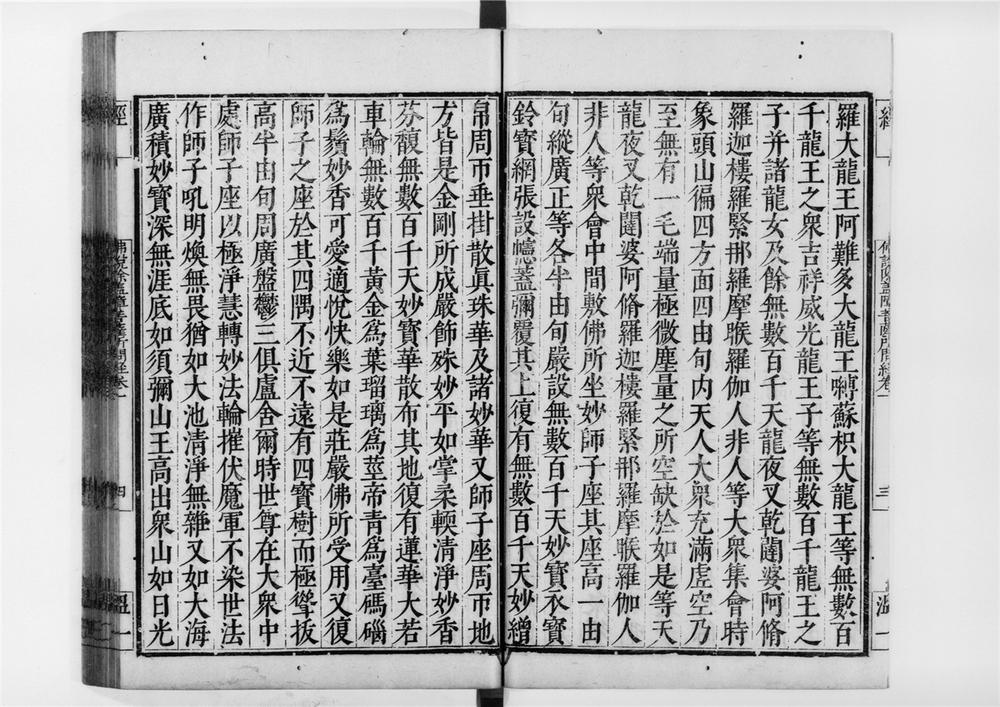 羅大龍王阿難多大龍王嚩蘇枳大龍王等無數百
千龍王之衆吉祥威光龍王子等無數百千龍王之
子并諸龍女及餘無數百千天龍夜叉乾闥婆阿脩
羅迦樓羅緊那羅摩睺羅伽人非人等大衆集會時
象頭山徧四方面四由旬内天人大衆充滿虛空乃
至無有一毛端量極微塵量之所空缺於如是等天
龍夜叉乾闥婆阿脩羅迦樓羅緊那羅摩睺羅伽人
非人等衆會中間敷佛所坐妙師子座其座高一由
旬縱廣正等各半由旬嚴設無數百千天妙寶衣寶
鈴寶網張設幰蓋彌覆其上復有無數百千天妙繒
帛周帀垂掛散眞珠華及諸妙華又師子座周帀地
方皆是金剛所成嚴飾殊妙平如掌柔輭清淨妙香
芬馥無數百千天妙寶華散布其地復有蓮華大若
車輪無數百千黃金爲葉瑠璃爲莖帝青爲臺碼碯
爲鬚妙香可愛適悅快樂如是莊嚴佛所受用又復
師子之座於其四隅不近不遠有四寶樹而極聳拔
高半由旬周廣盤鬱三俱盧舍爾時世尊在大衆中
處師子座以極淨慧轉妙法輪摧伏魔軍不染世法
作師子吼明煥無畏猶如大池清淨無雜又如大海
廣積妙寶深無涯底如須彌山王高出衆山如日光
經
四
溫一
三